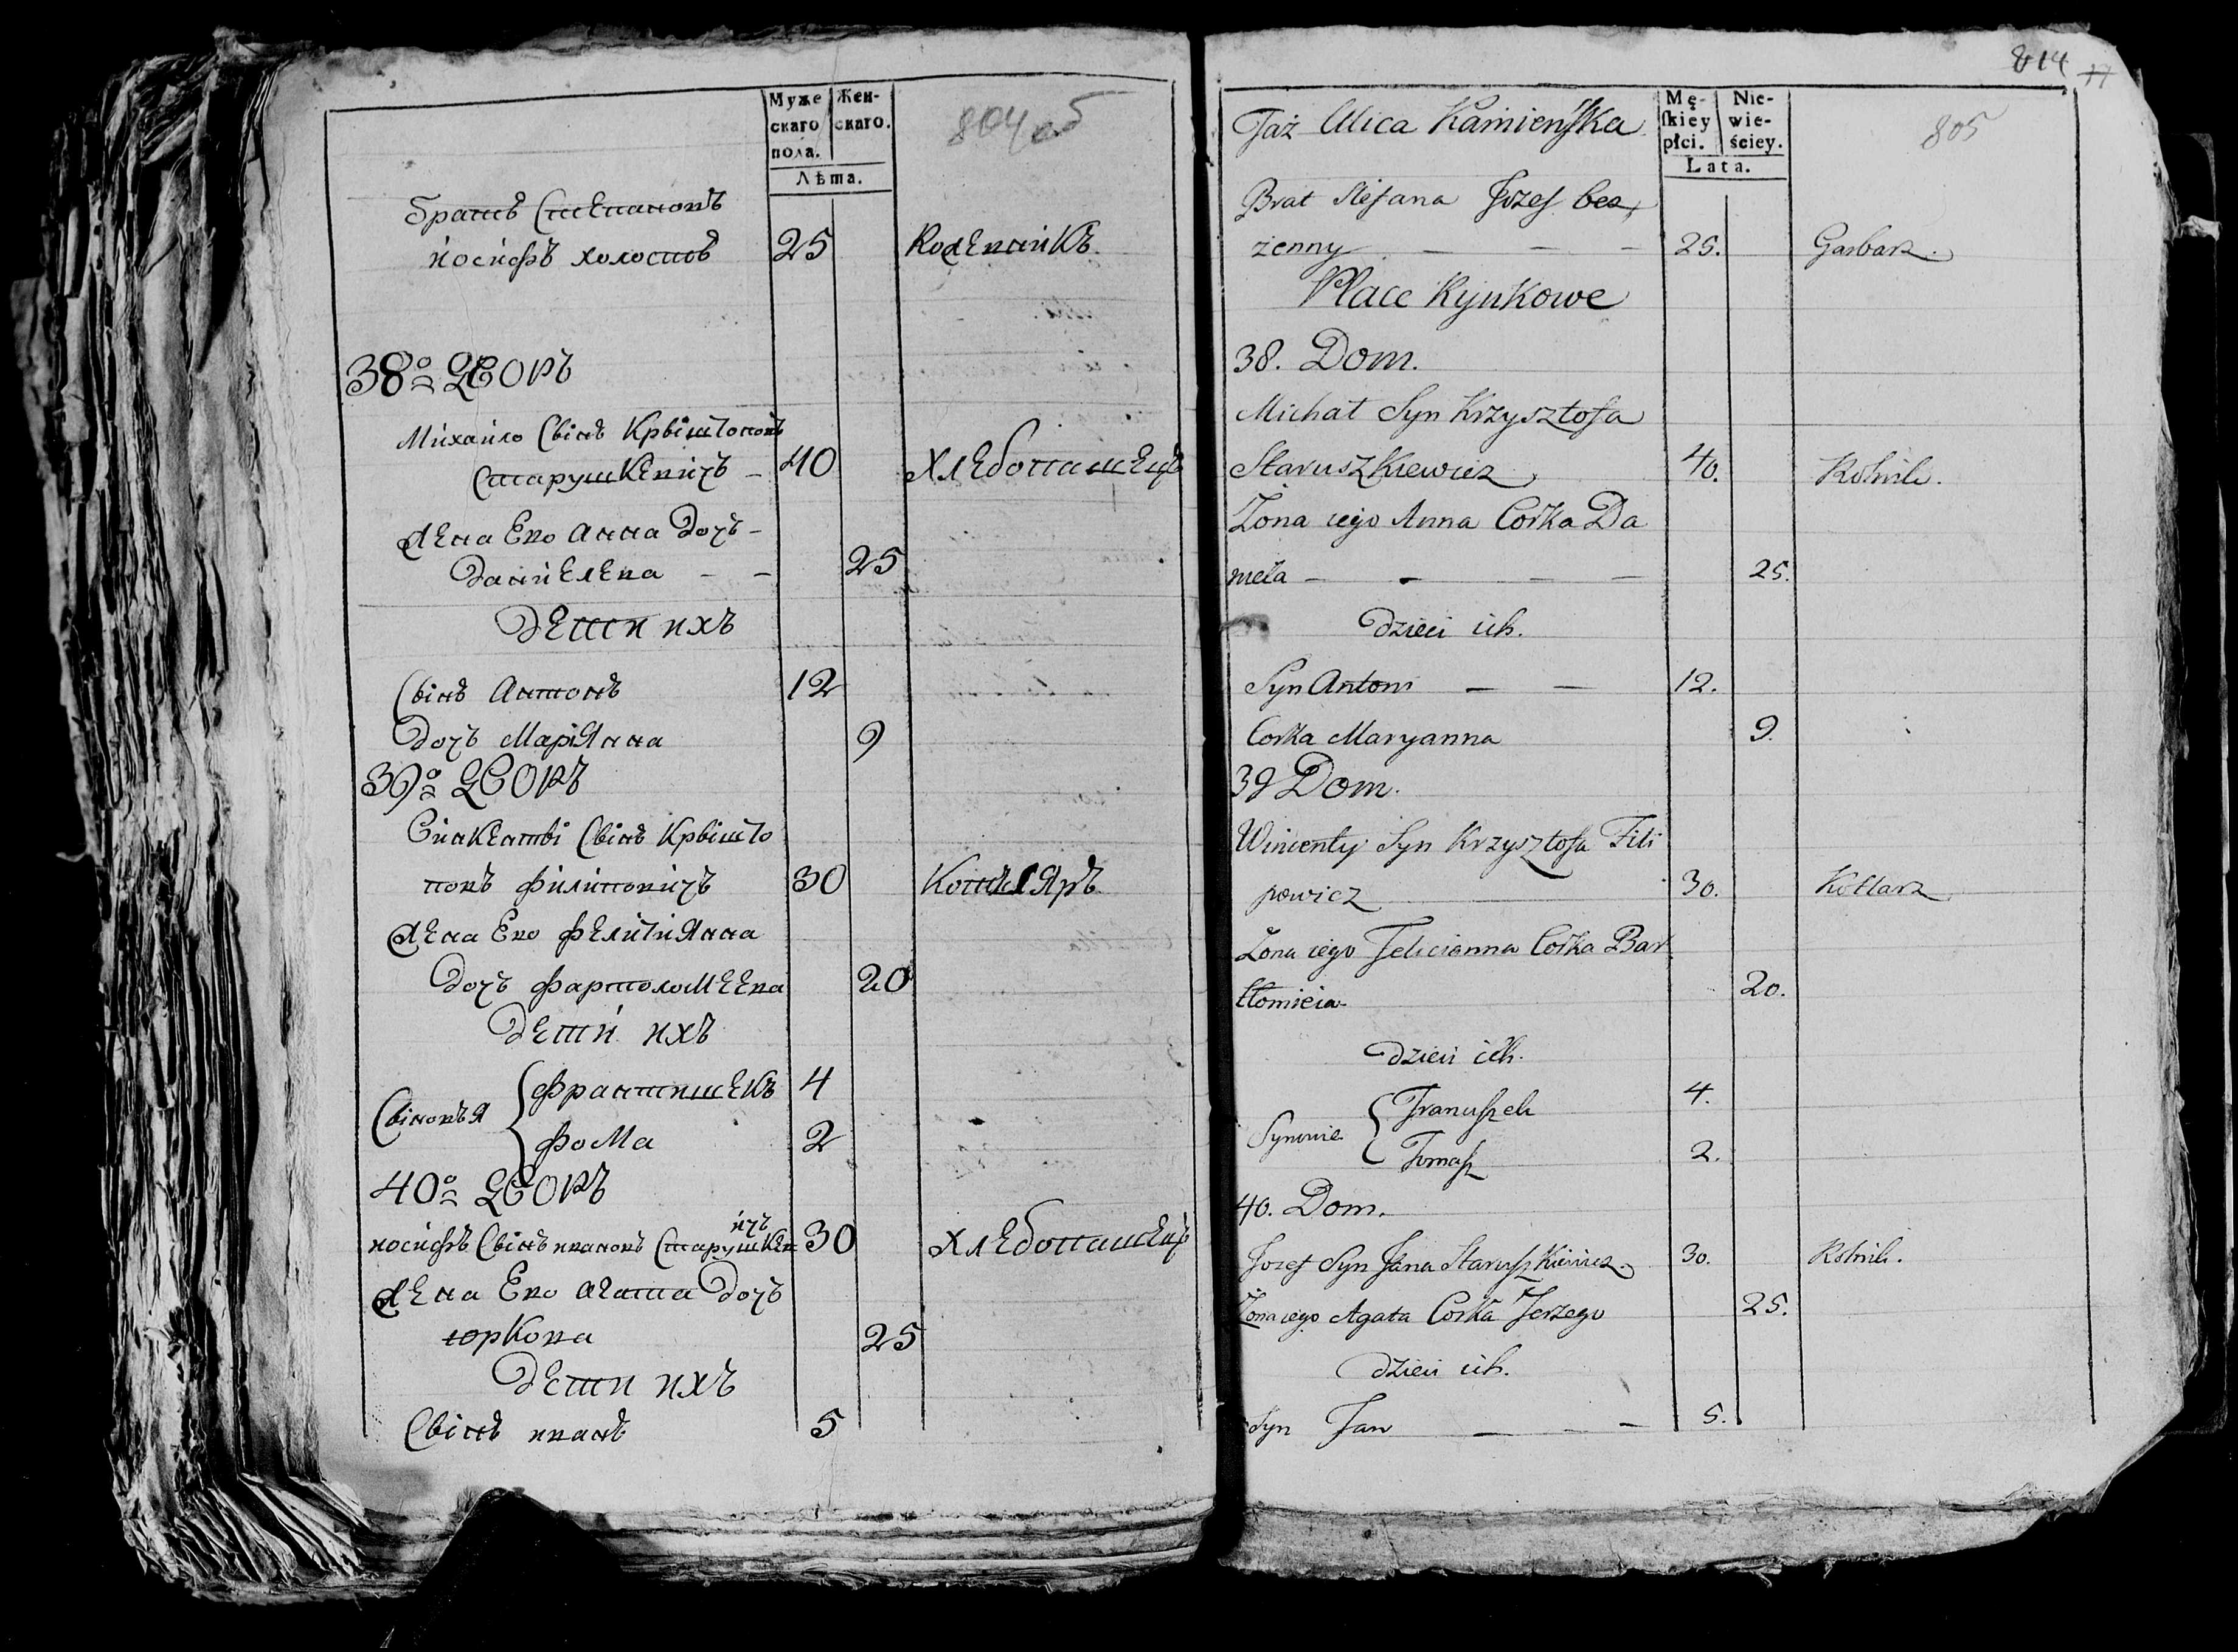 Муже Жен-
скаго скаго.
пола.
Лѣта.
804 об
братъ Степановъ
йосифъ холостъ 25 Кожевникъ
38о дворъ
Михайло Сынъ Крыштоповъ
Старушкевичъ - 40 Хлебопашецъ
Жена Ево Анна дочъ -
Даниелева - - 25
дети ихъ
Сынъ Антонъ 12
дочъ Мариянна 9
39о дворъ
Сынъ Крышто
повъ филиповичъ 30 Котляръ
Жена Ево Фелициянна
дочъ фартоломеева 20
дети ихъ
Сыновъя { францишекъ 4
фома 2
40о дворъ
иосифъ Сынъ ивановъ Старушкевичъ 30 Хлебопашецъ
Жена Ево Агата дочъ
юркова 25
дети ихъ
Сынъ иванъ 5
814 17
Taż Ulica Kamieńska
Mę- Nie-
ſkiey wie-
płci. ściey.
Lata.
805
Brat Stefana Jozef bez
żenny - - - 25. Garbarz.
Place Rynkowe
38. Dom.
Michał Syn Krzysztofa
Staruszkiewicz 40. Rolnik.
Żona iego Anna Corka Da
niela - - - - 25.
dzieci ich.
Syn Antoni - - 12.
Corka Maryanna 9.
39 Dom.
Wincenty Syn Krzysztofa Fili
powicz 30. Kotlarz
Żona iego Felicianna Corka Bar
tłomieia 20.
dzieci ich.
Synowie { Franciſzek 4.
Tomaſz 2.
40. Dom.
Jozef Syn Jana Staruſzkiewicz. 30. Rolnik.
Żona iego Agata Corka Jerzego 25.
dzieci ich.
Syn Jan - - - 5.